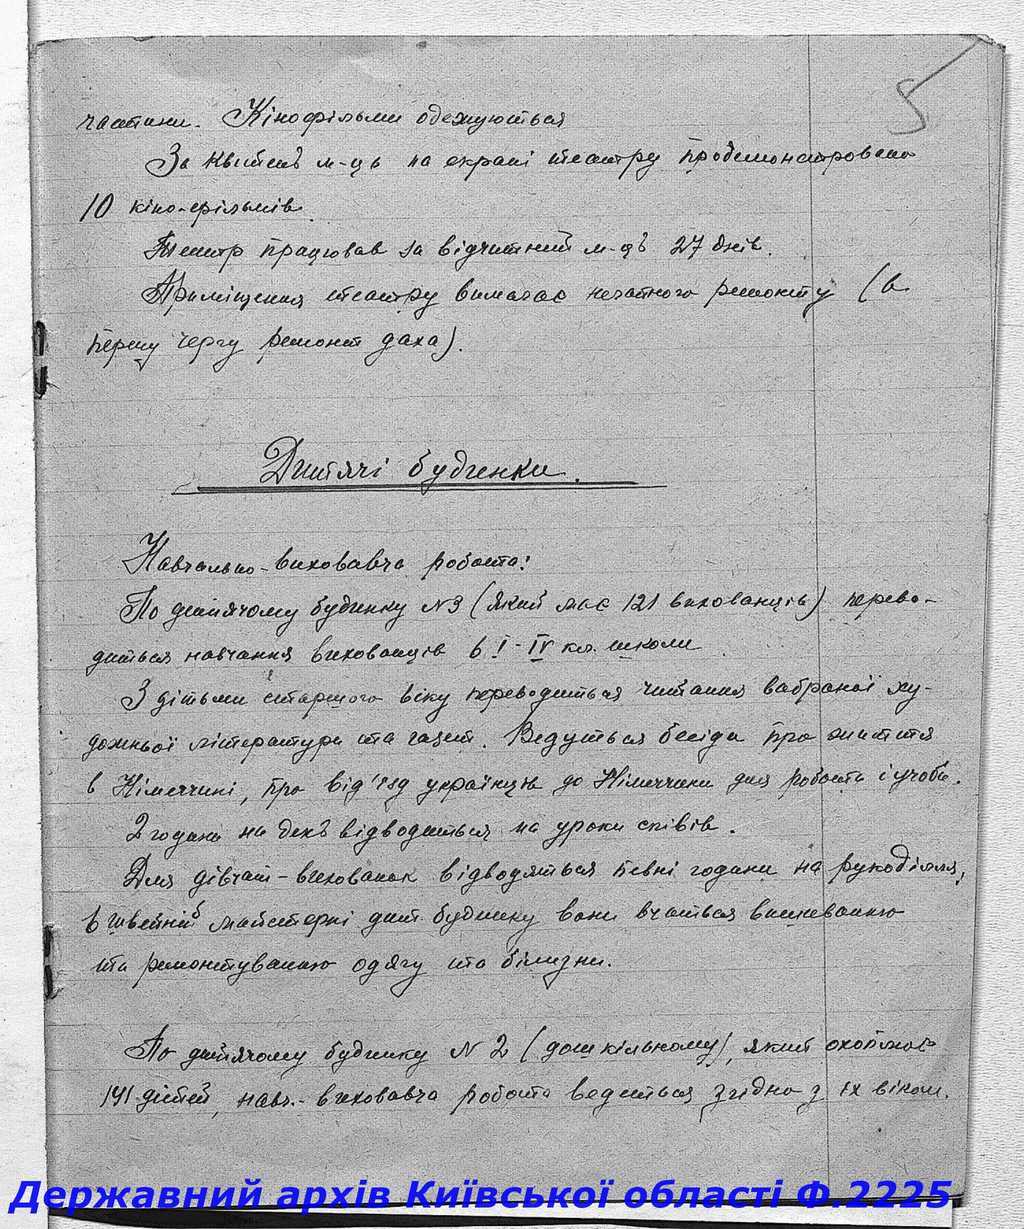 5
частини. Кінофільми одежуються
За квітень м-ць на екрані театру продемонстровано
10 кіно-фільмів.
Театр працював за відчитний м-ць 27 днів.
Приміщення театру вимагає негайного ремонту (в
першу чергу ремонт даха).
Дитячі будинки.
Навчально-виховавча робота:
По дитячому будинку №3 (який має 121 вихованців) перево-
диться навчання вихованців в I-IV кл. школи
З дітьми старшого віку переводиться читання вабраної ху-
дожньої літератури та газет. Ведуться бесіди про життя
в Німеччині, про від'їзд українців до Німеччини для роботи і учоби.
2 години на день відводиться на уроки співів.
Для дівчат-вихованок відводяться певні години на рукоділля,
в швейній майстерні дит. будинку вони вчаться вишиванню
та ремонтуванню одягу та білизни.
По дитячому будинку №2 (дошкільному), який охоплює
141 дітей, навч.-виховавча робота ведеться згідно з їх віком.
Державний архів Київської області Ф.2225